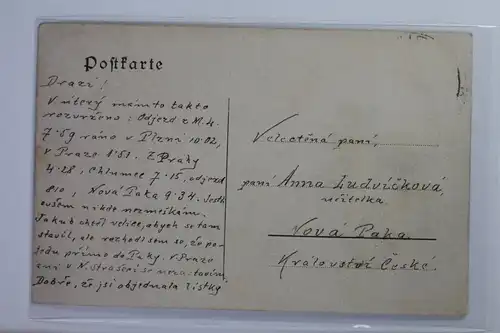 Postkarte
Drazí!
V úterý mám to takto
rozvrženo: Odjezd z M. 4.
7·59 ráno v Plzni 10·02,
v Praze 1·51. Z Prahy
4·28, Chlumec 7·15, odjezd
810, Nová Paka 9·34. Jestli
ovšem nikde nezmeškám.
Jakub chtěl velice, abych se tam
stavil, ale rozhodl sem se, že po-
jedu přímo do Paky. V Praze
ani v N. Strašecí se nezastavím.
Dobře, že jsi objednala lístky
Velectěná paní,
paní Anna Ludvíčková,
učitelka
Nová Paka
Království České.